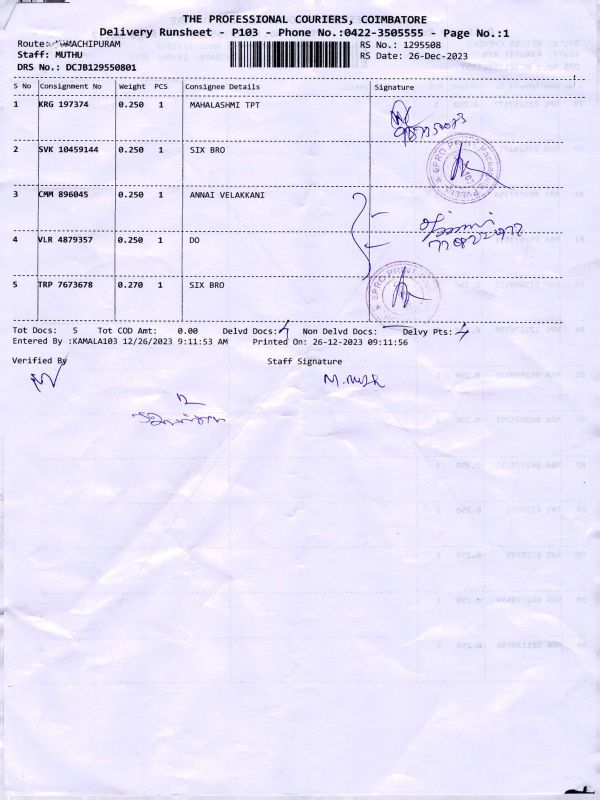 THE PROFESSIONAL COURIERS, COIMBATORE
Delivery Runsheet - P103 - Phone No.:0422-3505555 - Page No.:1
Route: MACHIPURAM
RS No.: 1295508
Staff: MUTHU
RS Date: 26-Dec-2023
DRS No.: DCJB129550801
S No Consignment No Weight PCS Consignee Details Signature
1 KRG 197374 0.250 1 MAHALASHMI TPT
2 SVK 10459144 0.250 1 SIX BRO
3 CMM 896045 0.250 1 ANNAI VELAKKANI
4 VLR 4879357 0.250 1 DO
5 TRP 7673678 0.270 1 SIX BRO
Tot Docs: 5 Tot COD Amt: 0.00 Delvd Docs: Non Delvd Docs: Delvy Pts:
Entered By :KAMALA103 12/26/2023 9:11:53 AM Printed On: 26-12-2023 09:11:56
Verified By Staff Signature